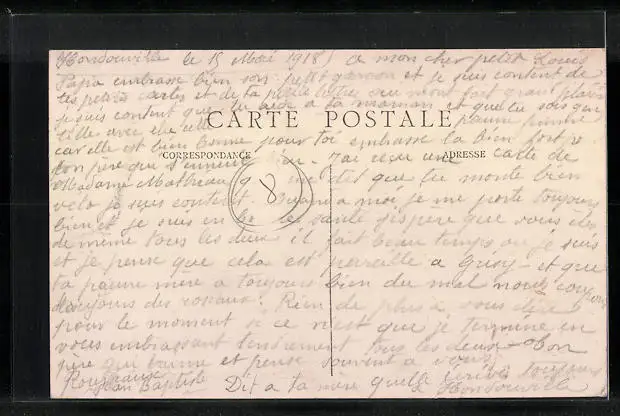 Hondouville le 15 Mai 1918 a mon cher petit Louis
Papa embrasse bien son petit garcon et je suis content de
tes petits cartes et de ta petite lettre qui mont fait grand plaisir
je suis content que tu aide a ta maman et que tu sois gentille avec elle
CARTE POSTALE
car elle est bien bonne pour toi embrasse la bien fort
CORRESPONDANCE
ADRESSE
ton père qui s'ennuie bien. J'ai recu une carte de
Madame Mathieu que tu monte bien
8
velo je suis content. Quand a moi je me porte toujours
bien et je suis en santé j'espère que vous êtes
de même tous les deux il fait beau temps ou je suis
et je pense que cela est pareille a Grisy et que
ta pauvre mère a toujours bien du mal
toujours des Rien de plus a vous dire
pour le moment si ce n'est que je termine en
vous embrassant tendrement tous les deux ton
père qui t'aime et pense souvent a vous
Jean Baptiste Dit a ta mère quelle écrive toujours
a Hondouville